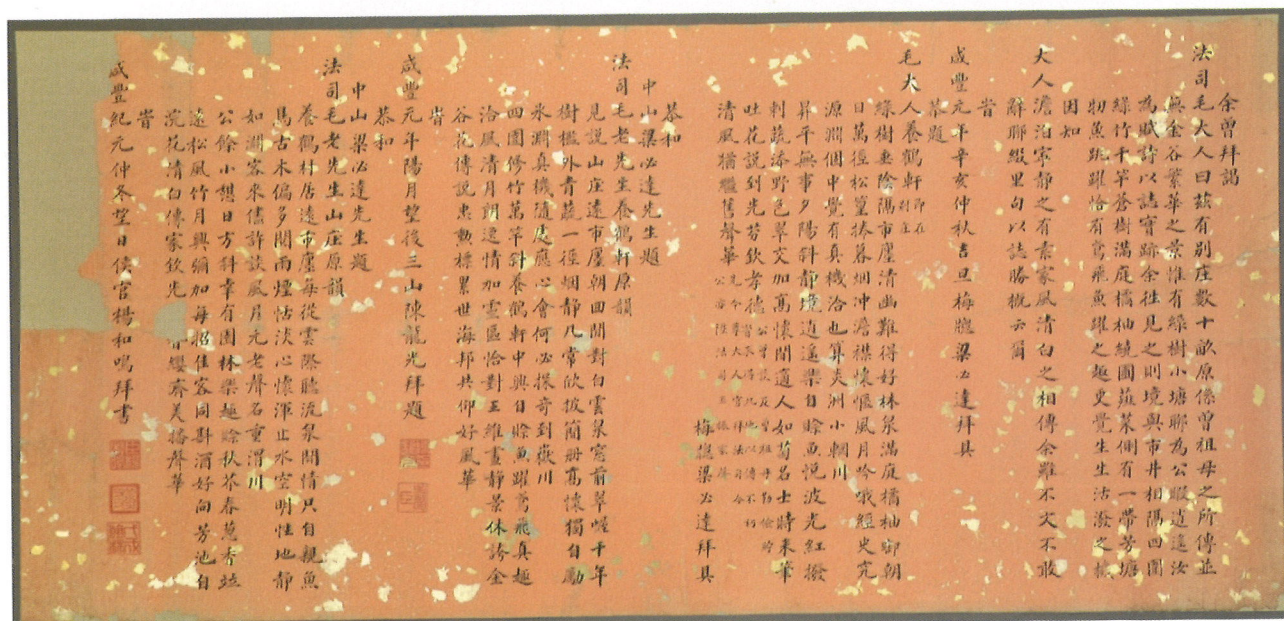 余曾拜謁
法司毛大人曰茲有別庄數十畝原係曾祖母之所傳並
無金谷繁華之景惟有綠樹小塘聊為公暇逍遙汝
為賦詩以誌寶跡余往見之則境與市井相隔四圍
綠竹千竿蒼樹滿庭橘柚繞園蔬菜側有一帶芳塘
物魚跳躍恰有鳶飛魚躍之趣史覺生生活潑之機
因知
大人澹泊寧靜之有素家風清白之相傳余雖不文不敢
辭聯綴里句以誌勝概云爾
旹
咸豐元年辛亥仲秋吉旦梅牕梁必達拜具
恭題
毛大人養鶴軒即在別庄
綠樹垂陰隔市廛清幽難得好林泉滿庭橘柚御朝
日萬徑松篁捧暮烟冲澹襟懷愜風月吟哦經史究
源淵個中覺有真機洽也算瀛洲小輞川
昇平無事夕陽斜靜境逍遙樂自賒魚悦波光紅撥
剌蔬添野色翠交加高懷閒適人如菊名士時來筆
吐花説到先芬欽孝德
清風猶繼舊聲華
梅牕梁必達拜具
恭和
中山梁必達先生題
法司毛老先生養鶴軒原韻
見説山庄遠市廛朝回閒對白雲泉窓前翠幄千年
樹檻外青蔬一徑烟靜几常欣披簡册高懷獨自勵
氷淵真機隨處應心會何必探奇到嶽川
四園修竹萬竿斜養鶴軒中興自賒魚躍鳶飛真趣
洽風清月朗逸情加靈區恰對王維畫靜景休誇金
谷花傳説惠勳標累世海邦共仰好風華
旹
咸豐元年陽月望後三山陳龍光拜題
恭和
中山梁必達先生題
法司毛老先生山庄原韻
養鶴村居遠市廛每從雲際聽流泉閒情只自親魚
鳥古木偏多閱雨煙恬淡心懷渾止水空明性地靜
如淵客來儘許談風月元老聲名重渭川
公餘小憩日方斜幸有園林樂趣賒秋芥春葱香竝
遠松風竹月興彌加每招佳客同斟酒好向芳池自
浣花清白傳家欽先 纓齊美播聲華
旹
咸豐紀元仲冬望日侯官楊和鳴拜書